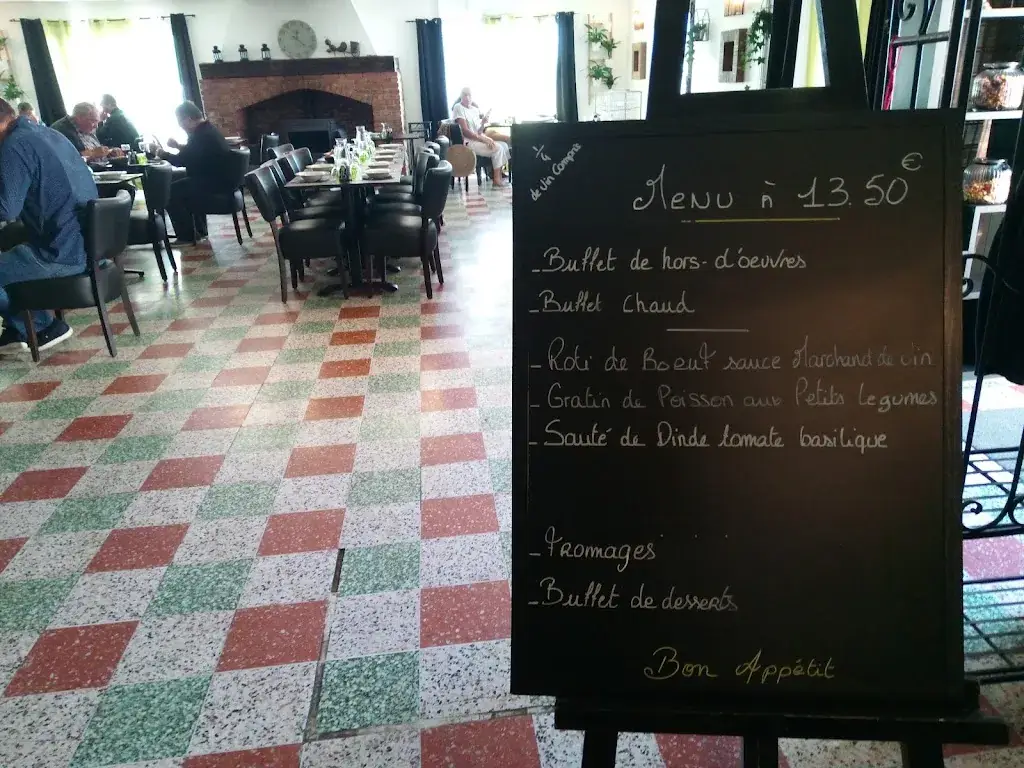 1/4
de Vin Compris
Menu à 13.50€
- Buffet de hors-d'oeuvres
- Buffet Chaud
- Roti de Boeuf sauce Marchand de vin
- Gratin de Poisson aux Petits Legumes
- Sauté de Dinde tomate basilique
- Fromages
- Buffet de desserts
Bon Appétit